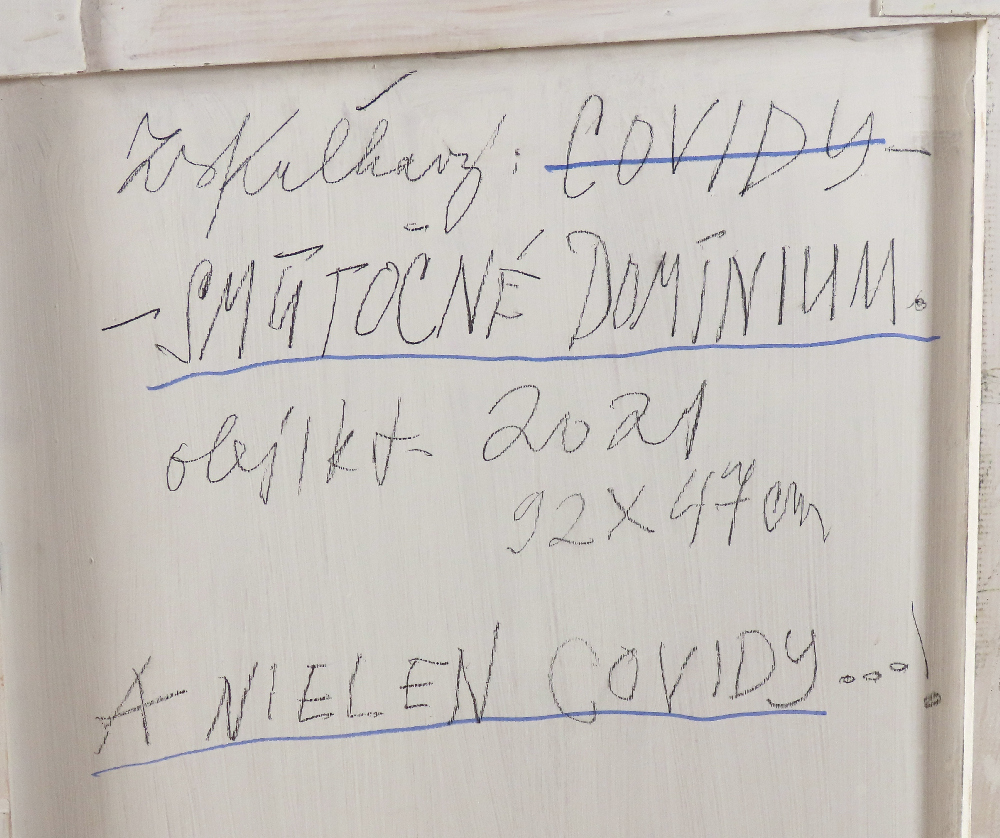 : COVIDY -
- SMÚTOČNÉ DOMÍNIUM.
objekt 2021
92 X 47 cm
A NIELEN COVIDY...!